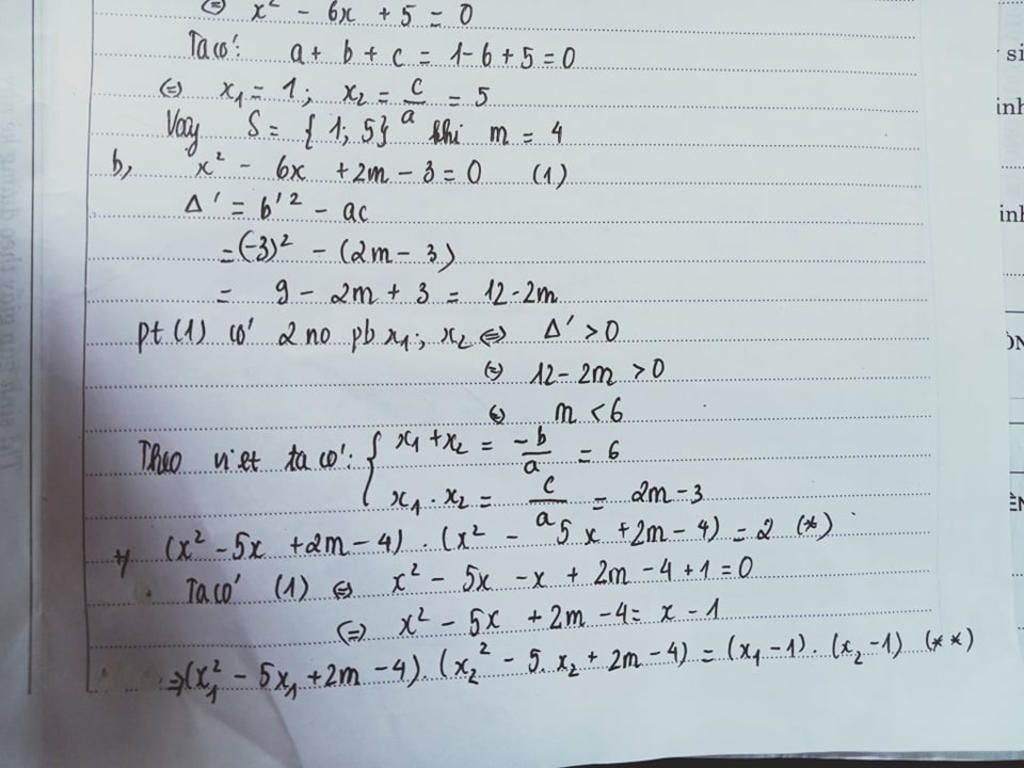 (=) x² - 6x + 5 = 0
Ta có: a + b + c = 1 - 6 + 5 = 0
(=) x₁ = 1; x₂ = c/a = 5
Vậy S = {1; 5} khi m = 4
b, x² - 6x + 2m - 3 = 0 (1)
Δ' = b'² - ac
= (-3)² - (2m - 3)
= 9 - 2m + 3 = 12 - 2m
pt (1) có 2 no pb x₁; x₂ (=) Δ' > 0
(=) 12 - 2m > 0
(=) m < 6
Theo viet ta có: { x₁ + x₂ = -b/a = 6
x₁ . x₂ = c/a = 2m - 3
(x² - 5x + 2m - 4) . (x² - 5x + 2m - 4) = 2 (*)
Ta có (1) (=) x² - 5x - x + 2m - 4 + 1 = 0
(=) x² - 5x + 2m - 4 = x - 1
=> (x₁² - 5x₁ + 2m - 4) . (x₂² - 5.x₂ + 2m - 4) = (x₁ - 1) . (x₂ - 1) (**)